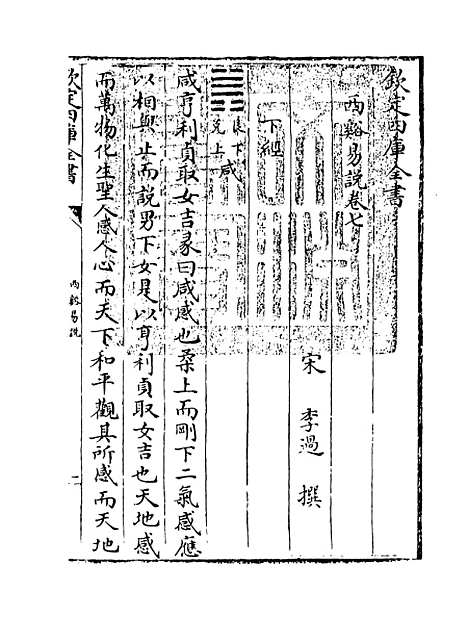 欽定四庫全書
西谿易說卷七
宋 李過 撰
下經
艮下
兌上
咸
咸亨利貞取女吉彖曰咸感也柔上而剛下二氣感應
以相與止而說男下女是以亨利貞取女吉也天地感
而萬物化生聖人感人心而天下和平觀其所感而天地
欽定四庫全書
西谿易說